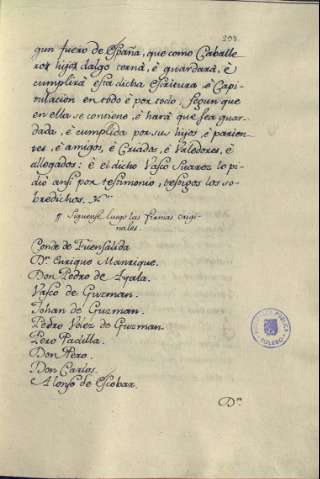 gun fuero de España, que como Caballe-
ros hijos dalgo terná, é guardará, é
cumplirá esta dicha escritura é Capi-
tulacion en todo é por todo, segun que
en ella se contiene, é hará que sea guar-
dada, é cumplida por sus hijos, é parien-
tes, é amigos, é Criados, é Valedores, é
allegados: é el dicho Vasco Suarez lo pi-
dió ansi por testimonio, testigos los so-
bredichos.
Siguense luego las firmas origi-
nales.
Conde de Fuensalida
Dn. Enrique Manrique.
Don Pedro de Ayala.
Vasco de Guzman.
Johan de Guzman.
Pedro Velez de Guzman
Pero Padilla.
Don Pero.
Don Carlos.
Alonso de Escobar.
Dn.